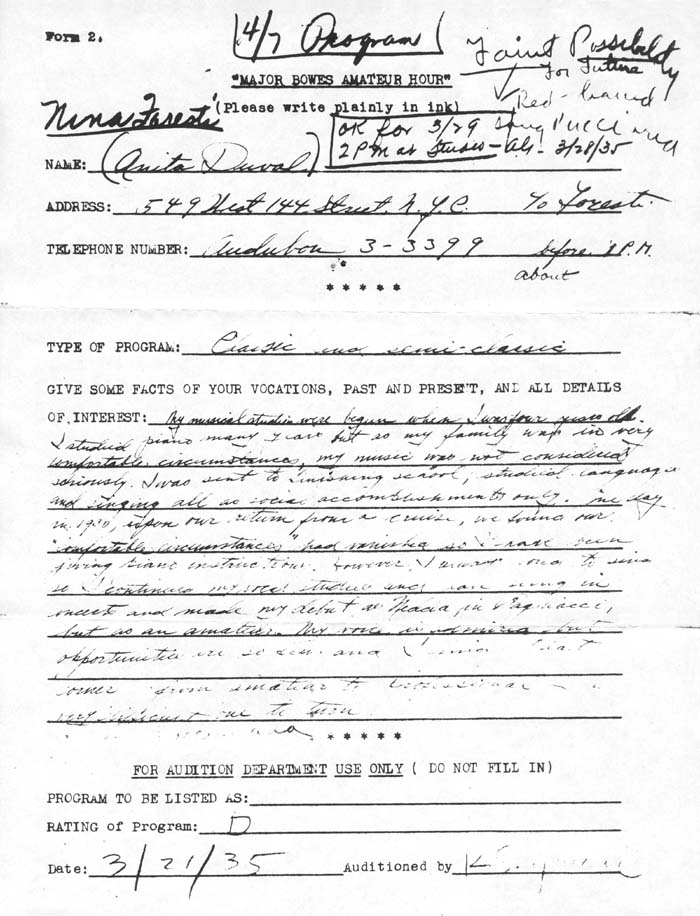 Form 2.
4/7 Program
Faint Possibility
For Future
"MAJOR BOWES AMATEUR HOUR"
Red-haired
Nina Foresti
(Please write plainly in ink)
OK for 3/29
2 PM at Studio - 3/28/35
Sang Puccini aria
NAME: (Anita Duval)
ADDRESS: 549 West 144 Street. N.Y.C. % Foresti.
TELEPHONE NUMBER: Audubon 3-3399 before 1 P.M.
about
* * * * *
TYPE OF PROGRAM: Classic and semi-classic
GIVE SOME FACTS OF YOUR VOCATIONS, PAST AND PRESENT, AND ALL DETAILS
OF INTEREST: My musical studies were begun when I was four years old.
I studied piano many years but as my family was in very
comfortable circumstances, my music was not considered
seriously. I was sent to finishing school, studied languages
and singing all as social accomplishments only. One day
in 1930, upon our return from a cruise, we found our
"comfortable circumstances" had vanished so I have been
giving piano instructions. However, I always to sing
so I continued my vocal studies and have sung in
concert and made my debut as Nedda in Pagliacci,
but as an amateur. My voice is but
opportunities are so and I that
corner from amateur to professional
very difficult one to turn
* * * * *
FOR AUDITION DEPARTMENT USE ONLY ( DO NOT FILL IN)
PROGRAM TO BE LISTED AS:
RATING of Program: D
Date: 3/21/35 Auditioned by